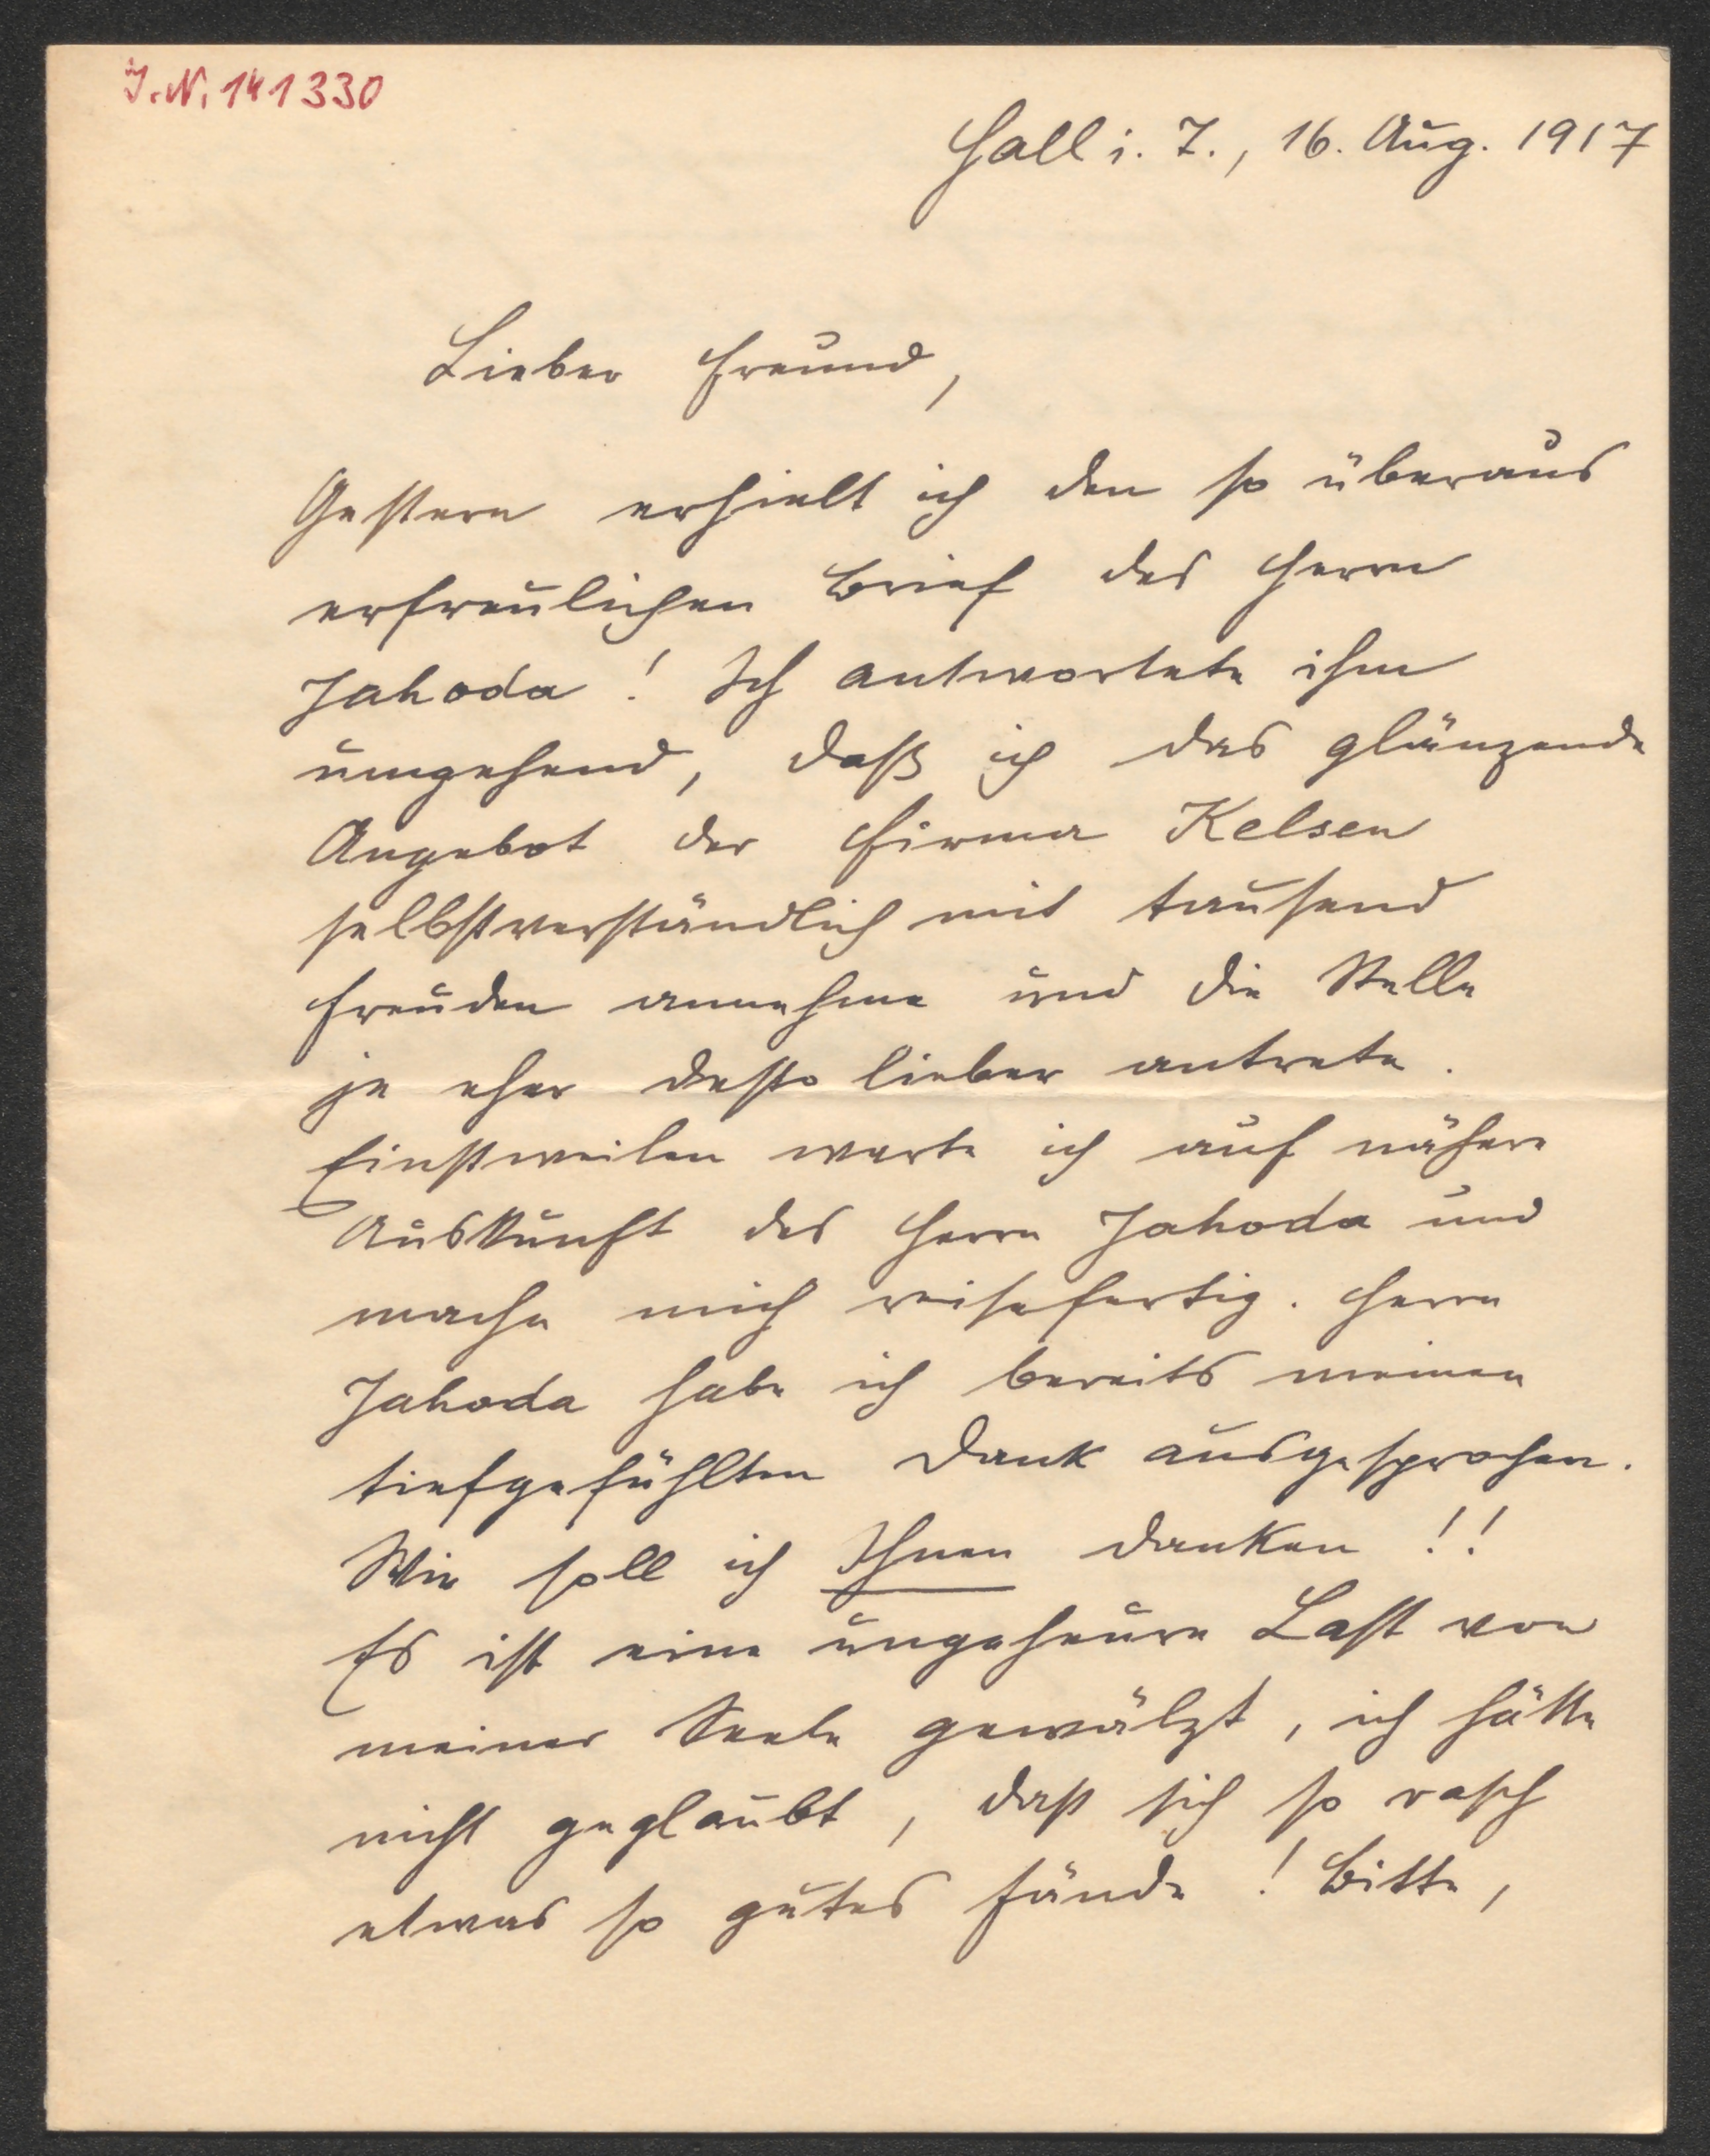 J.N. 141330
Hall i. T., 16. Aug. 1917
Lieber Freund,
Gestern erhielt ich den so überaus
erfreulichen Brief des Herrn
Jahoda! Ich antwortete ihm
umgehend, daß ich das glänzende
Angebot der Firma Kelsen
selbstverständlich mit tausend
Freuden annehme und die Stelle
je eher desto lieber antrete.
Einstweilen warte ich auf nähere
Auskunft des Herrn Jahoda und
mache mich reisefertig. Herrn
Jahoda habe ich bereits meinen
tiefgefühlten Dank ausgesprochen.
Wie soll ich Ihnen danken!!
Es ist eine ungeheure Last von
meiner Seele gewälzt, ich hätte
nicht geglaubt, dass sich so rasch
etwas so gutes fände! Bitte,